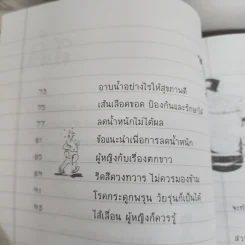 อาบน้ำอย่างไรให้สุขภาพดี
เส้นเลือดขอด ป้องกันและรักษา
ลดน้ำหนักไม่ได้ผล
ข้อแนะนำเพื่อการลดน้ำหนัก
ผู้หญิงกับเรื่องตกขาว
ริดสีดวงทวาร ไม่ควรมองข้าม
โรคกระดูกพรุน วัยรุ่นก็เป็นได้
ไส้เลื่อน ผู้หญิงก็ควรรู้